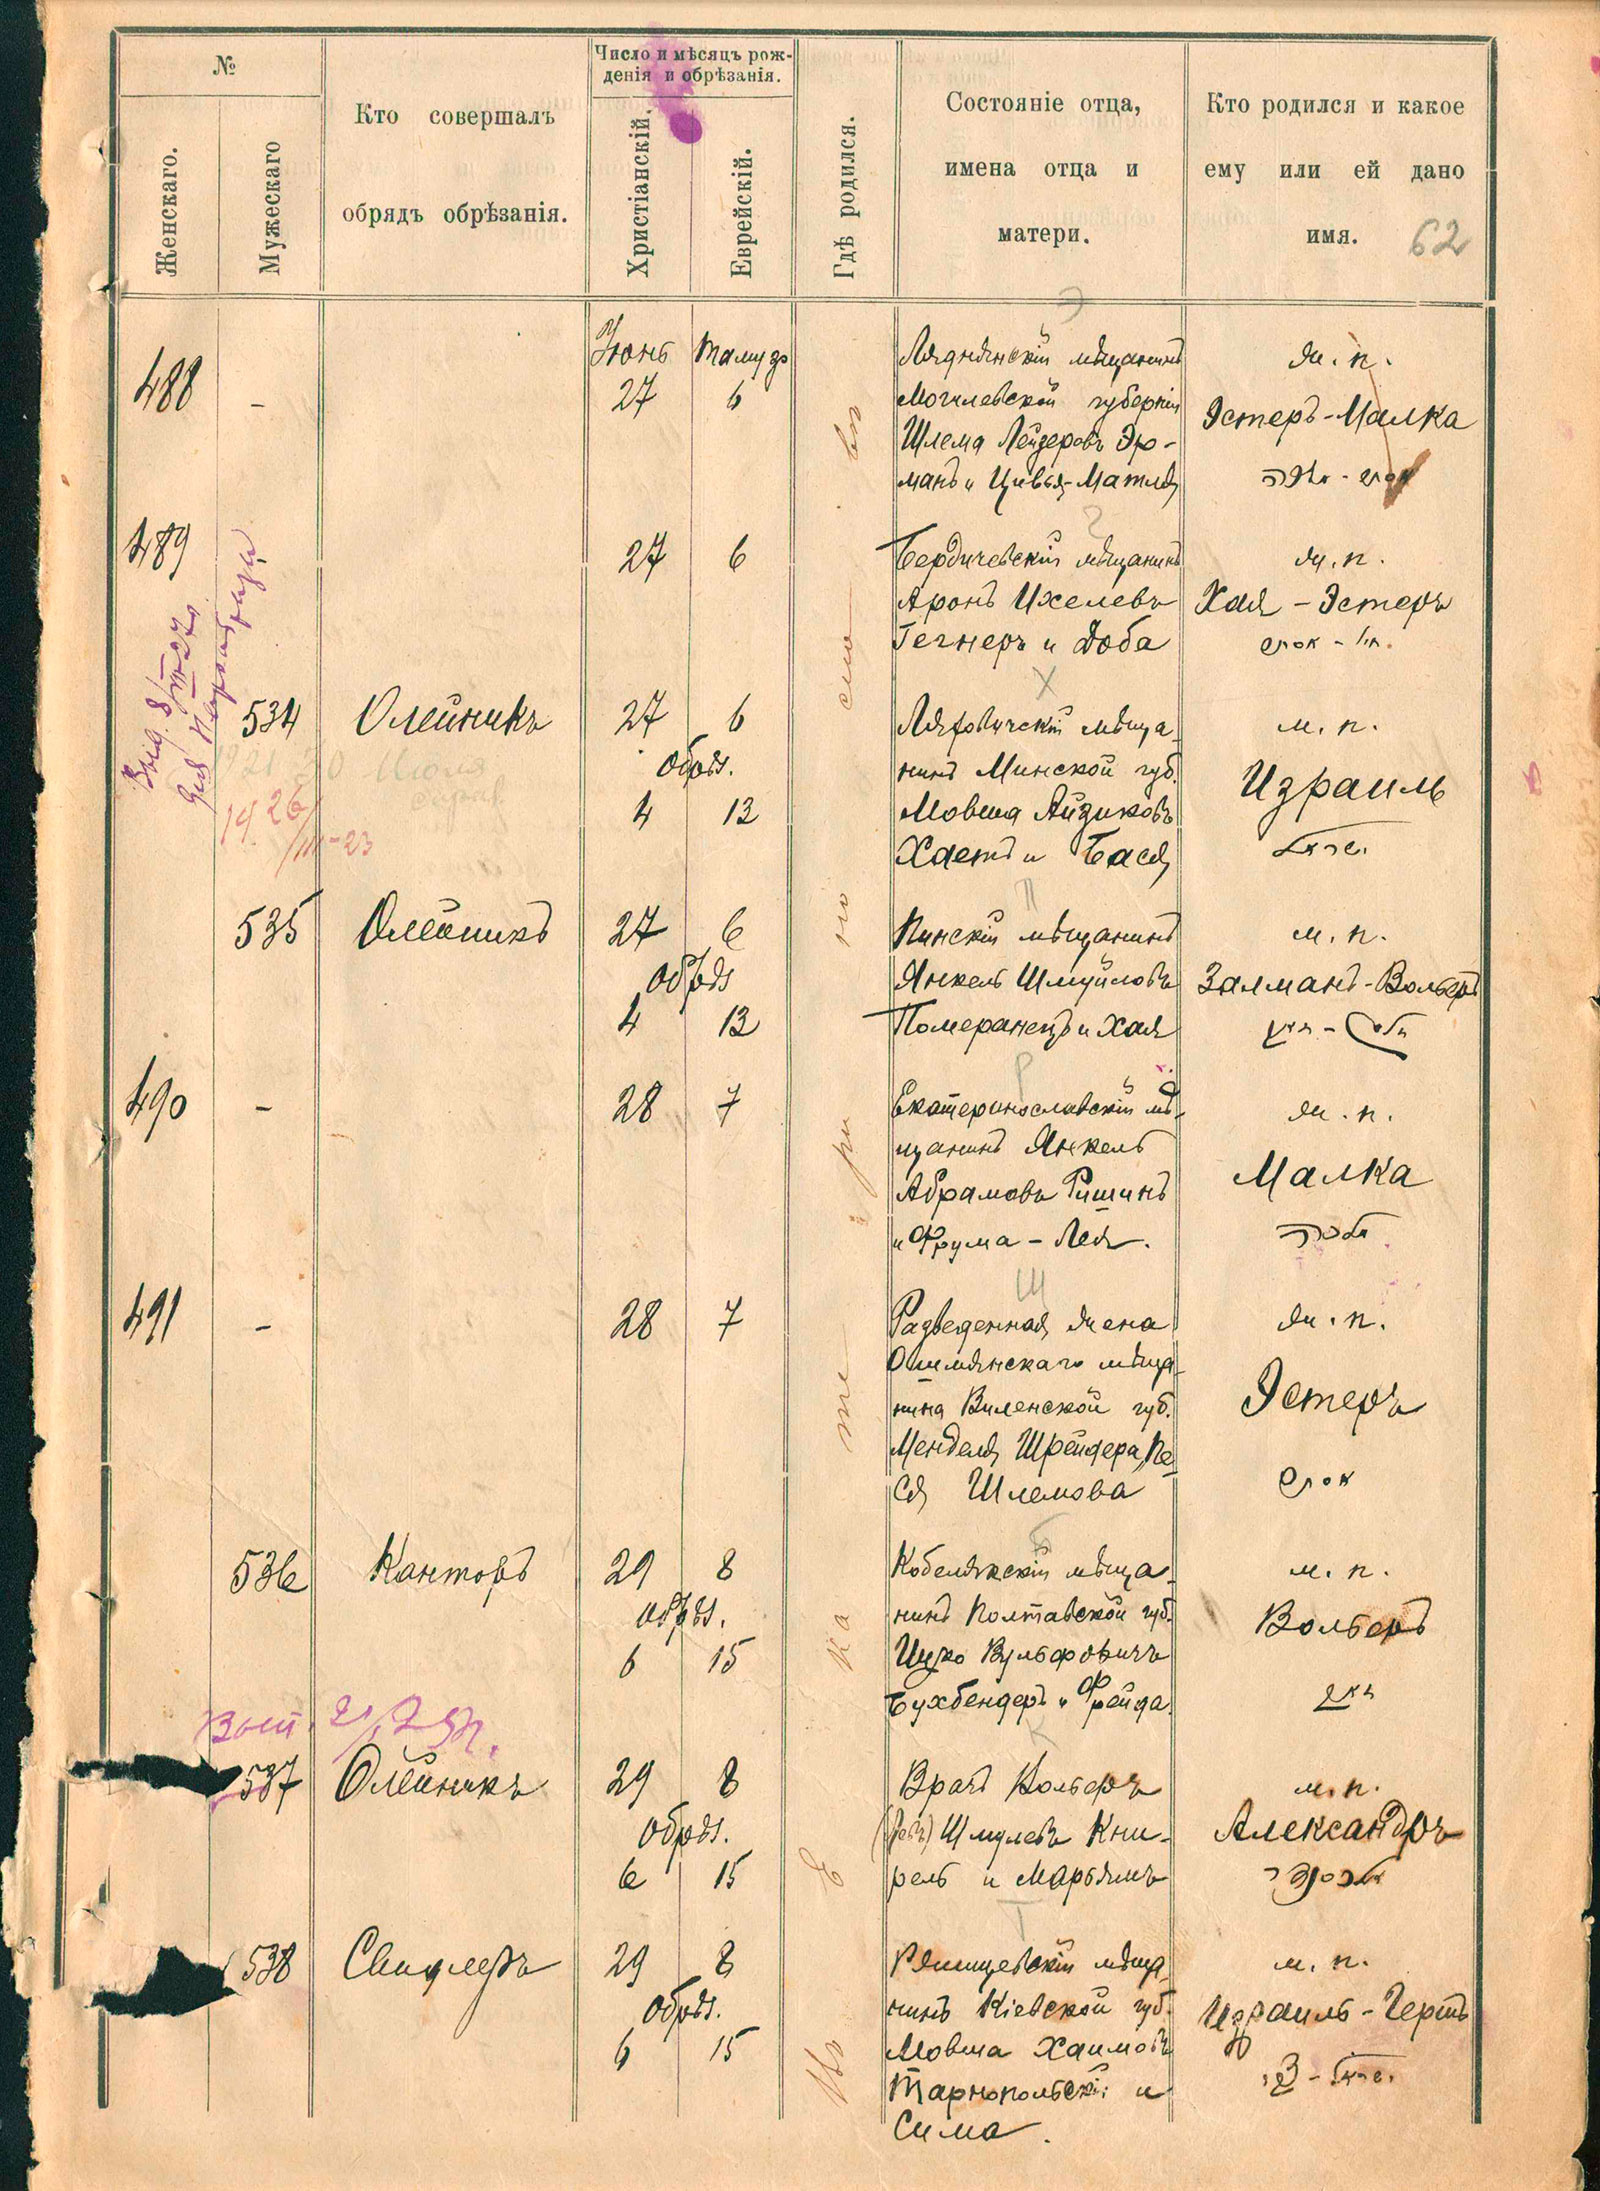 №
Женскаго.
Мужескаго
Кто совершалъ
обрядъ обрѣзанія.
Число и мѣсяцъ рож-
денія и обрѣзанія.
Христіанскій.
Еврейскій.
Гдѣ родился.
Состояніе отца,
имена отца и
матери.
Кто родился и какое
ему или ей дано
имя.
62
Въ Екатеринославѣ
Э
488
-
Іюнь
27
Тамузъ
6
Ляднянскій мѣщанинъ
Могилевской губерніи
Шлема Лейзеровъ Эр-
манъ и Цивья-Матля
ж. п.
Эстеръ-Малка
489
27
6
Бердичевскій мѣщанинъ
Аронъ Ихелевъ
Гегнеръ и Доба
ж. п.
Хая - Эстеръ
Х
534
Олейникъ
27
6
Обрѣз.
4
13
Ляховичскій мѣща-
нинъ Минской губ.
Мовша Айзиковъ
Хаетъ и Бася
м. п.
Израиль
1921 20 Июля
26/III-23
П
535
Олейникъ
27
6
Обрѣз
4
13
Пинскій мѣщанинъ
Янкель Шмуйловъ
Померанецъ и Хая
м. п.
Залманъ-Вольфъ
Р
490
-
28
7
Екатеринославскій мѣ-
щанинъ Янкель
Абрамовъ Ришинъ
и Фрума - Лея.
ж. п.
Малка
Ш
491
-
28
7
Разведенная жена
Ошмянскаго мѣща-
нина Виленской губ.
Менделя Шрейдера, Пе-
ся Шлемова
ж. п.
Эстеръ
Б
536
Канторъ
29
8
обрѣз.
6
15
Кобелякскій мѣща-
нинъ Полтавской губ.
Ицко Вульфовичъ
Бухбендеръ и Фрейда
м. п.
Вольфъ
К
537
Олейникъ
29
8
Обрѣз.
6
15
Врачъ Вольфъ
Шмулевъ Кни-
рель и Марьямъ
м. п.
Александръ
Т
538
29
8
Обрѣз.
6
15
Ряшцевскій мѣща-
нинъ Кіевской губ.
Мовша Хаимовъ
Тарнопольскій и
Сима.
м. п.
Израиль-Гершъ